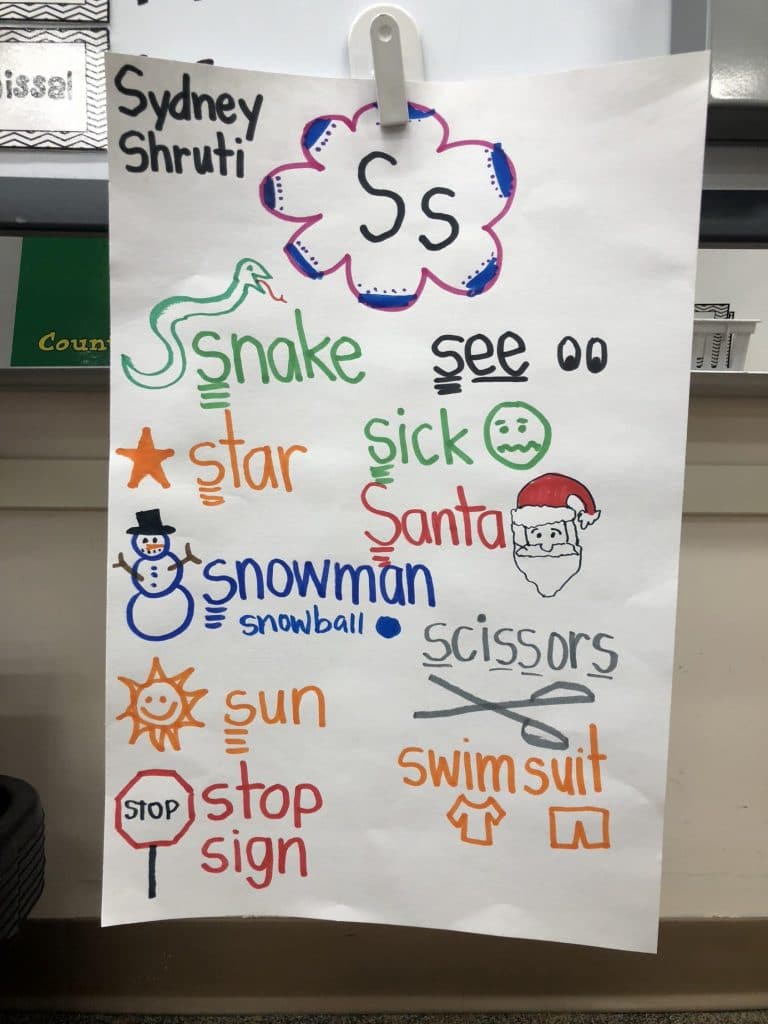 issal
Sydney
Shruti
Ss
snake
see
star
sick
Santa
snowman
snowball
scissors
sun
swimsuit
STOP
stop
sign
Coun